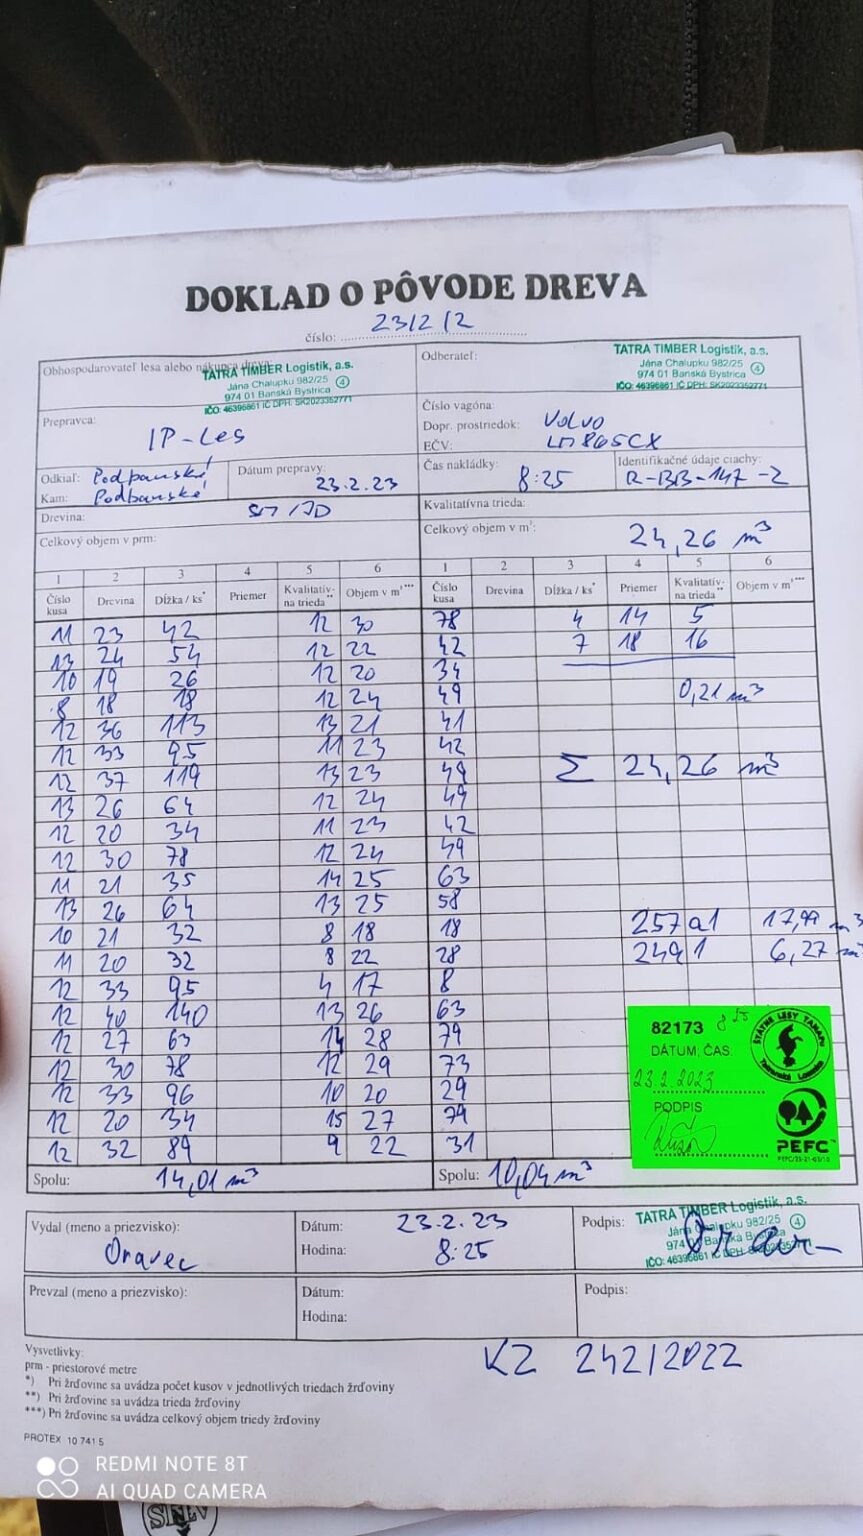 DOKLAD O PÔVODE DREVA
číslo: 23/2/2
Obhospodarovateľ lesa alebo nákupca dreva:
TATRA TIMBER Logistik, a.s.
Jána Chalupku 982/25
974 01 Banská Bystrica 4
IČO: 46396861 IČ DPH: SK2023352771
Odberateľ:
TATRA TIMBER Logistik, a.s.
Jána Chalupku 982/25
974 01 Banská Bystrica 4
IČO: 46396861 IČ DPH: SK2023352771
Prepravca: IP-Les
Číslo vagóna:
Dopr. prostriedok: Volvo
EČV: LM865CX
Odkiaľ: Podbanské
Kam: Podbanské
Dátum prepravy: 23.2.23
Čas nakládky: 8:25
Identifikačné údaje ciachy: R-BB-147-2
Drevina: SM/JD
Kvalitatívna trieda:
Celkový objem v prm:
Celkový objem v m³: 24,26 m³
1 2 3 4 5 6 1 2 3 4 5 6
Číslo kusa Drevina Dĺžka / ks* Priemer Kvalitatív-na trieda** Objem v m³*** Číslo kusa Drevina Dĺžka / ks* Priemer Kvalitatív-na trieda** Objem v m³***
11 23 42 12 30 78 4 14 5
13 24 54 12 22 42 7 18 16
10 19 26 12 20 34
8 18 18 12 24 49 0,21 m³
12 36 113 13 21 41
12 33 95 11 23 42
12 37 119 13 23 49 Σ 24,26 m³
13 26 64 12 24 49
12 20 34 11 23 42
12 30 78 12 24 49
11 21 35 14 25 63
13 26 64 13 25 58
10 21 32 8 18 18 257a1 17,99 m³
11 20 32 8 22 28 249 1 6,27 m³
12 33 95 4 17 8
12 40 140 13 26 63
12 27 63 14 28 79
12 30 78 12 29 73
12 33 96 10 20 29
12 20 34 15 27 79
12 32 89 9 22 31
82173 8 25
DÁTUM, ČAS:
23.2.2023
PODPIS
ŠTÁTNE LESY TANAPu
Tatranská Lomnica
PEFC™
Spolu: 14,01 m³ Spolu: 10,04 m³
Vydal (meno a priezvisko): Oravec
Dátum: 23.2.23
Hodina: 8:25
Podpis:
TATRA TIMBER Logistik, a.s.
Jána Chalupku 982/25
974 01 Banská Bystrica 4
IČO: 46396861 IČ DPH: SK2023352771
Prevzal (meno a priezvisko):
Dátum:
Hodina:
Podpis:
KZ 242/2022
Vysvetlivky:
prm - priestorové metre
*) Pri žrďovine sa uvádza počet kusov v jednotlivých triedach žrďoviny
**) Pri žrďovine sa uvádza trieda žrďoviny
***) Pri žrďovine sa uvádza celkový objem triedy žrďoviny
PROTEX 10 741 5
REDMI NOTE 8T
AI QUAD CAMERA